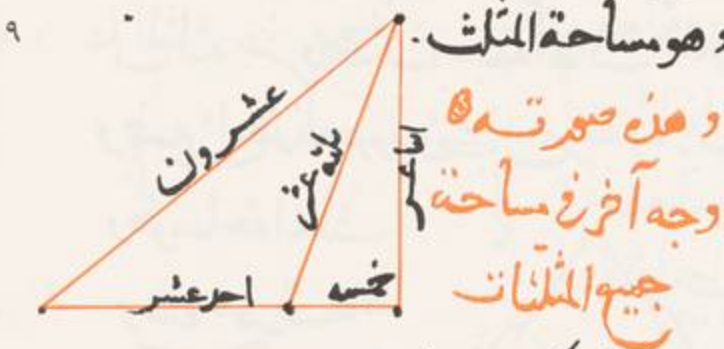 ٩
وهو مساحة المثلث.
وهذه صورته
وجه آخر في مساحة
جميع المثلثات
عشرون
ثلثه عشر
اثنا عشر
احد عشر
خمسه